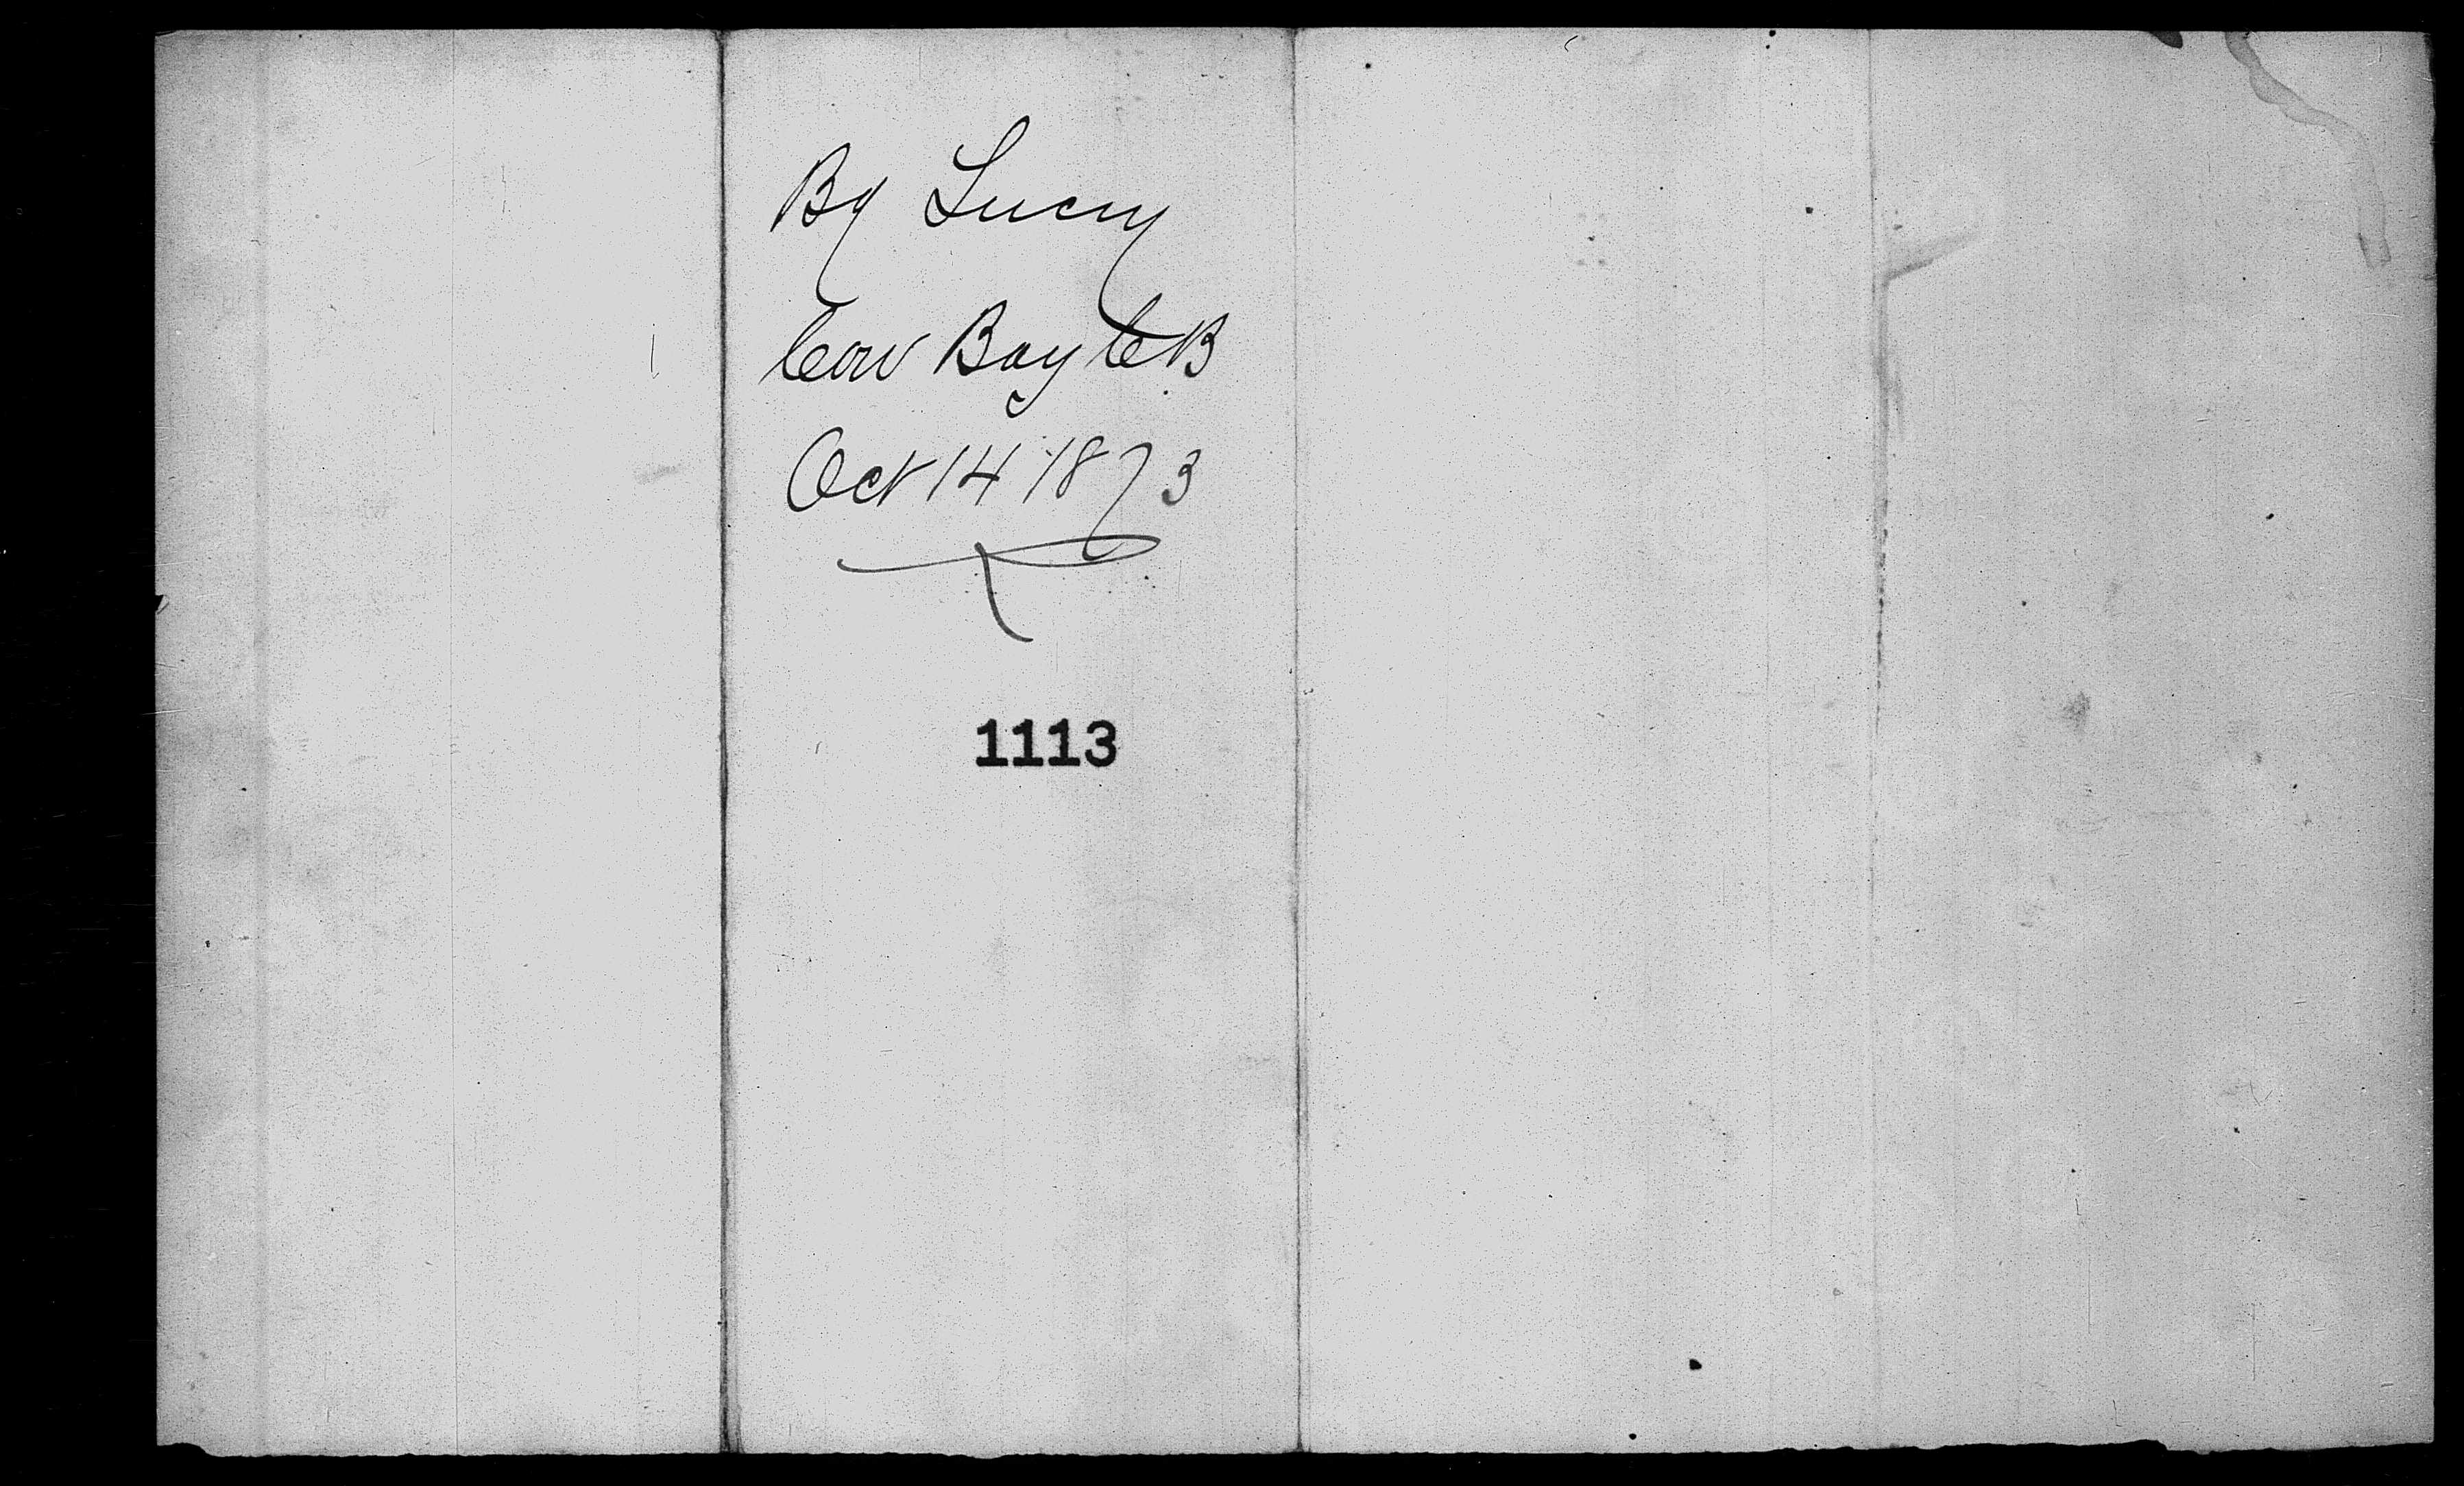 Bg Lucy
Cow Bay CB
Oct 14 1873
1113